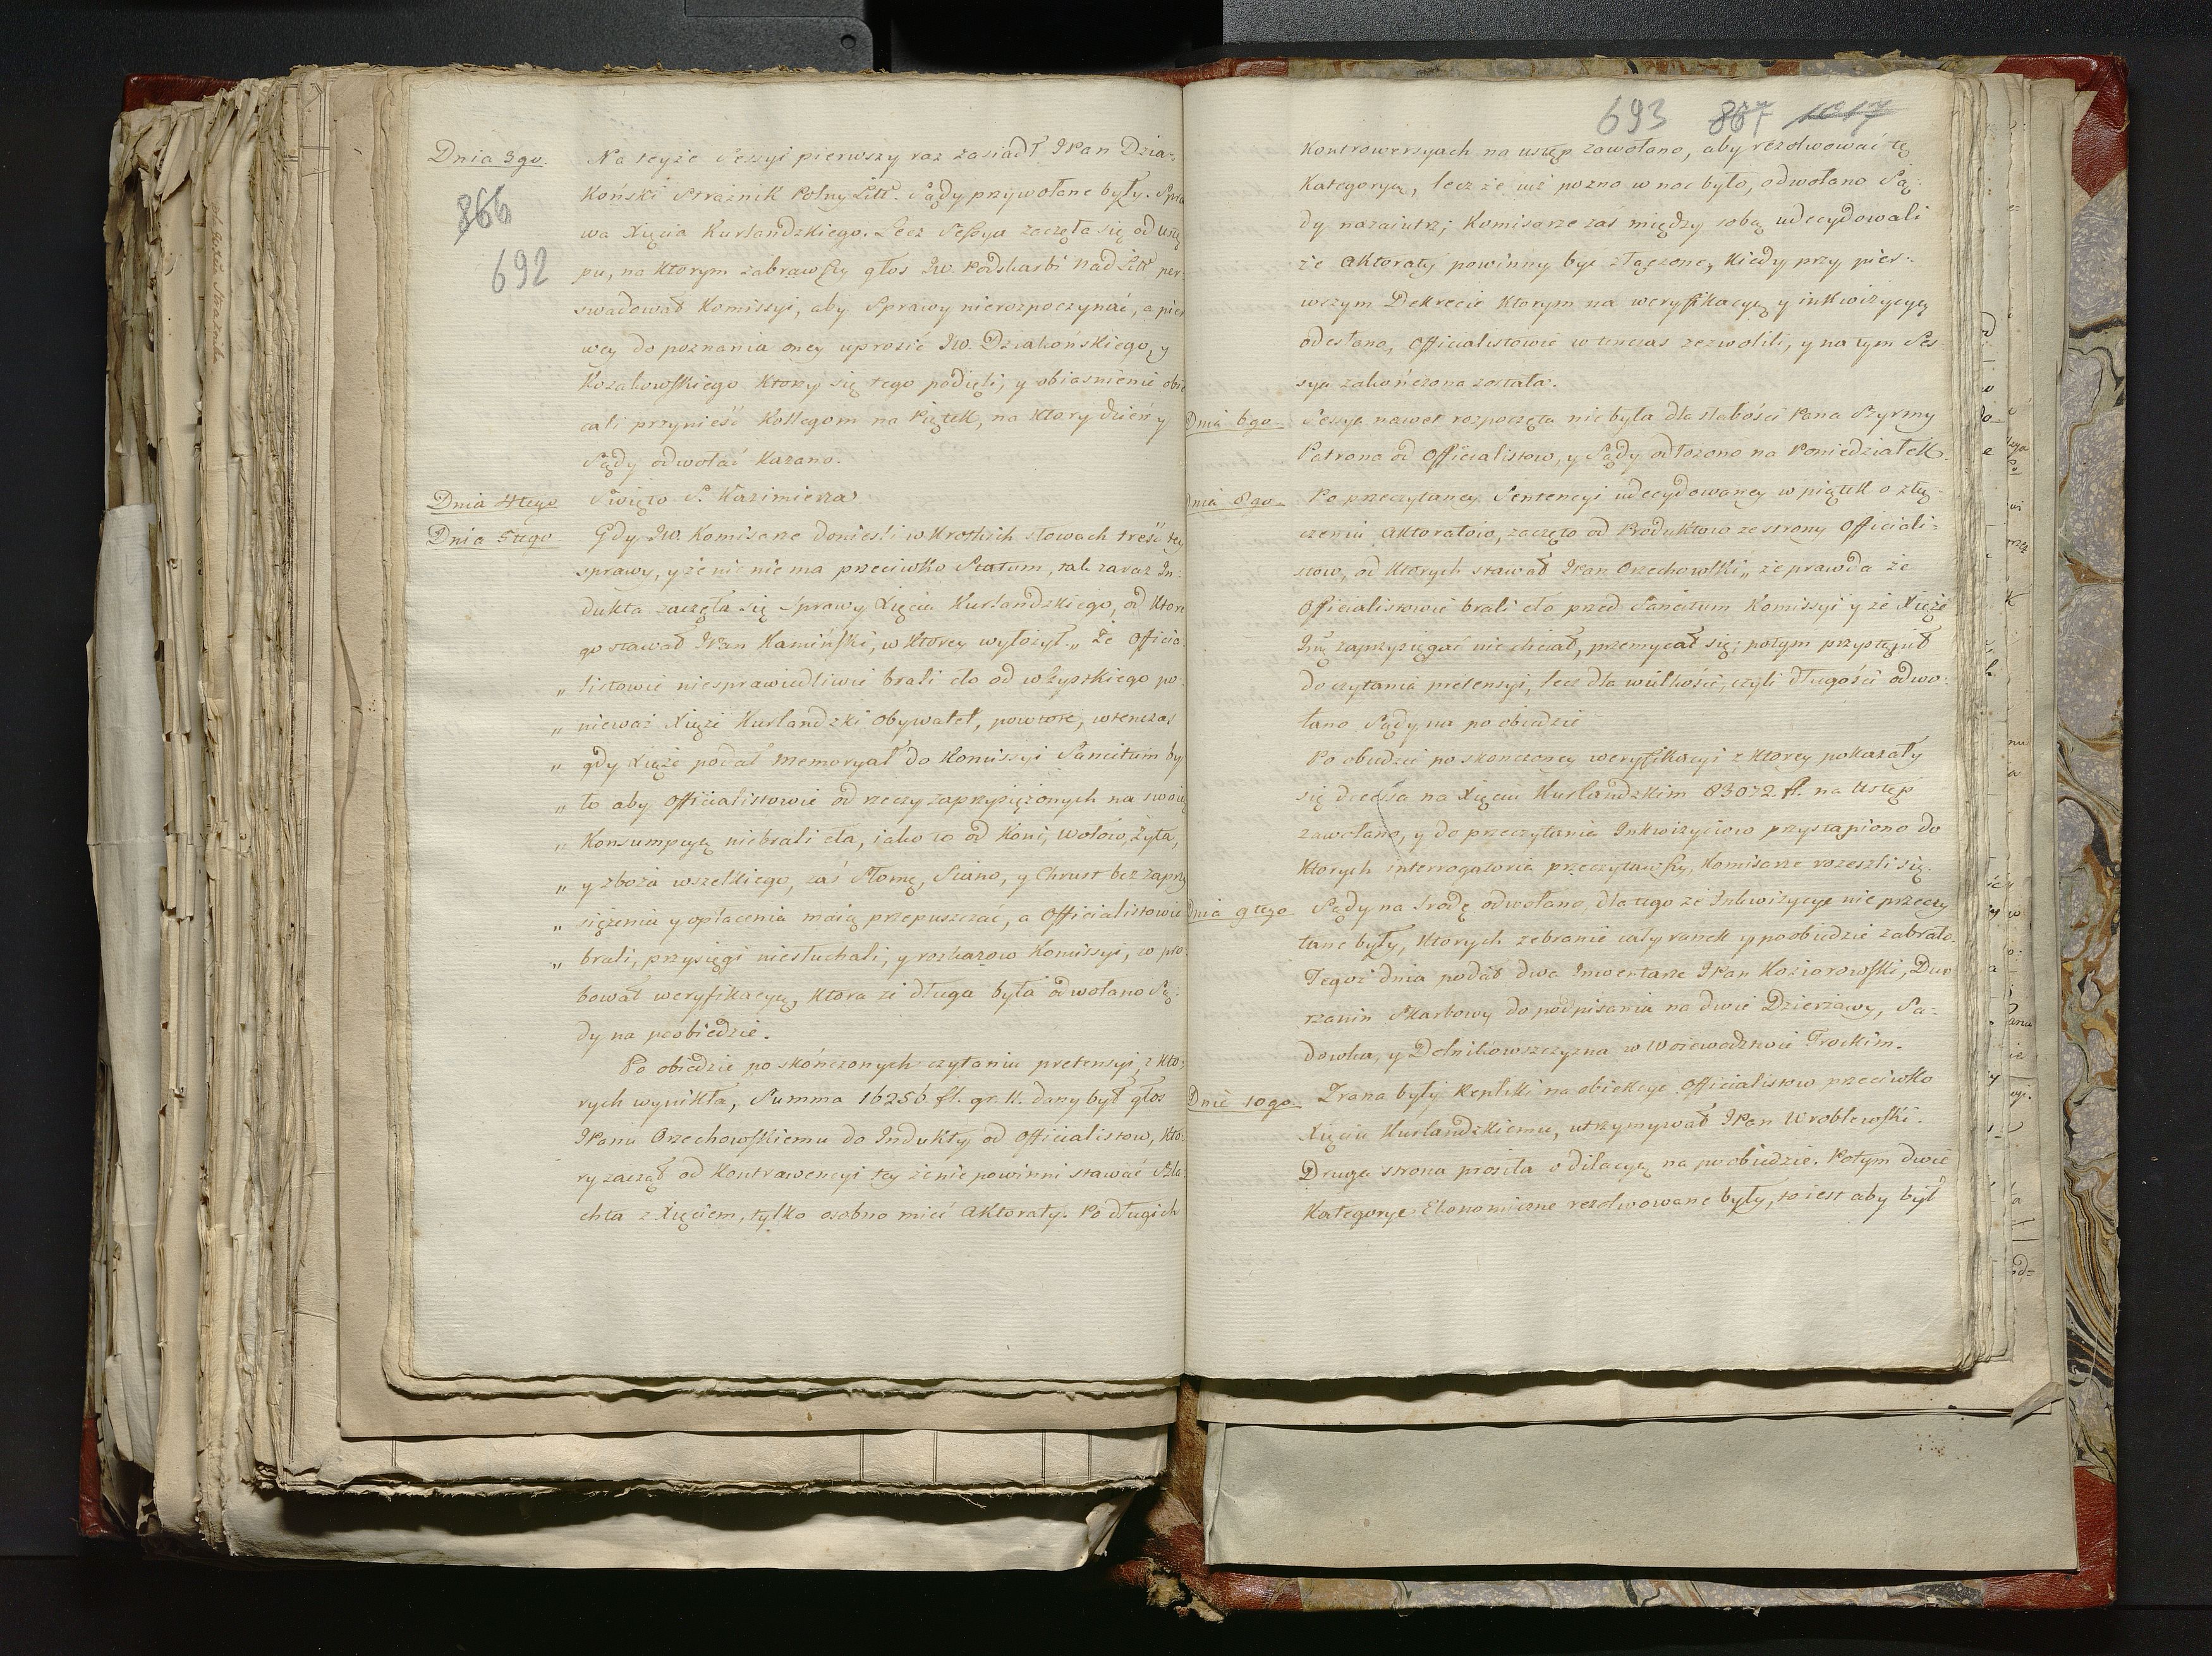 Dnia 3go. Na teyże Sessyi pierwszy raz zasiadł JPan Dzia-
koński Strażnik Polny Litt. Sądy przywołane były. Spra
866
wa Xięcia Kurlandzkiego. Lecz Sessya zaczęła się od ustę
692
pu, na ktorym zabrawszy głos Jw. Podskarbi Nad Litt per
swadował Komissyi, aby Sprawy nierozpoczynać, a pier
wey do poznania oney uprosić Jw. Dziakońskiego, y
Kozakowskiego ktorzy się tego podięli, y obiasnienie obie
cali przynieść Kollegom na Piątek, na ktory dzień y
Sądy odwołać kazano.
Dnia 4tego Swięto S. Kazimierza
Dnia 5tego Gdy Jw. Komisarze donieśli w krotkich słowach treść tey
sprawy, y że nic nie ma przeciwko Statum, tak zaraz In-
dukta zaczęła się Sprawy Xięcia Kurlandzkiego, od ktore
go stawał JPan Kamiński, w ktorey wyłożył „ Że Officia-
„ listowie niesprawiedliwie brali cło od wszystkiego po-
„ nieważ Xiąże Kurlandzki Obywatel, powtore, wtenczas
„ gdy Xiąże podał Memoryał do Komissyi Sancitum by
„ to aby Officialistowie od rzeczy zaprzysiężonych na swoię
„ Konsumpcyą niebrali cła, iako to od Koni, Wołow, Żyta,
„ y zboża wszelkiego, zaś Słomę, Siano, y Chrust bez zaprzy
„ siężenia y opłacenia maią przepuszczać, a Officialistowie
„ brali, przysięgi niesłuchali, y rozkazow Komissyi, co pro-
bował weryfikacyą, ktora że długa była odwołano Są-
dy na poobiedzie.
Po obiedzie po skończonych czytaniu pretensyi, z kto-
rych wynikła, Summa 16256 fl. gr. 11. dany był głos
JPanu Orzechowskiemu do Indukty od Officialistow, kto-
ry zaczął od Kontrawencyi tey że nie powinni stawać Szla-
chta z Xięciem, tylko osobno mieć Aktoraty. Po długich
693 867 1017
Kontrowersyach na ustęp zawołano, aby rezolwować tę
Kategoryą, lecz że iuż pozno w noc było, odwołano Są-
dy nazaiutrz; Komisarze zaś między sobą udecydowali
że Aktoraty powinny być złączone, kiedy przy pier-
wszym Dekrecie ktorym na weryfikacyą y inkwizycyą
odesłano, Officialistowie wtenczas zezwolili, y na tym Ses-
sya zakończona została.
Dnia 6go. Sessya nawet rozpoczęta nie była dla słabości Pana Szyrmy
Patrona od Officialistow, y Sądy odłożono na Poniedziałek.
Dnia 8go. Po przeczytaney Sentencyi udecydowaney w piątek o złą-
czeniu Aktoratow, zaczęto od Produktow ze strony Officiali-
stow, od ktorych stawał JPan Orzechowski „ że prawda że
Officialistowie brali cło przed Sancitum Komissyi y że Xiąże
Jmć zaprzysięgać nie chciał, przemycał się; potym przystąpił
do czytania pretensyi, lecz dla wielkości, czyli długości odwo-
łano Sądy na po obiedzie
Po obiedzie po skonczoney weryfikacyi z ktorey pokazały
się decessa na Xięciu Kurlandzkim 83072. fl. na Ustęp
zawołano, y do przeczytania Inkwizyciow przystąpiono do
ktorych interrogatoria przeczytawszy, Komisarze rozeszli się.
Dnia 9tego Sądy na Srodę odwołano, dla tego że Inkwizycye nie przeczy
tane były, ktorych zebranie cały ranek y poobiedzie zabrało.
Tegoż dnia podał dwa Inwentarze JPan Koziorowski, Dwo
rzanin Skarbowy do podpisania na dwie Dzierżawy, Sa-
dowka, y Dolnikowszczyzna w Woiewodztwie Trockim.
Dnia 10go. Zrana były Repliki na obiekcye Officialistow przeciwko
Xięciu Kurlandzkiemu, utrzymywał JPan Wroblewski.
Druga strona prosiła o dilacyą na poobiedzie. Potym dwie
Kategorye Ekonomiczne rezolwowane były, to iest aby był